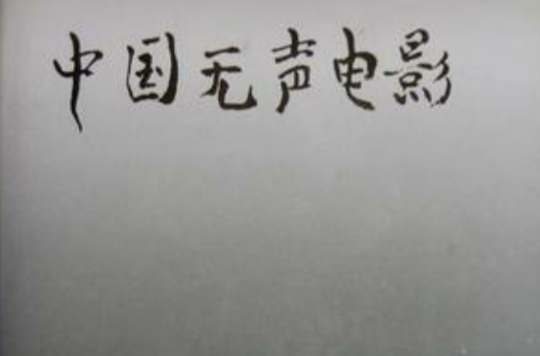 中国无声电影